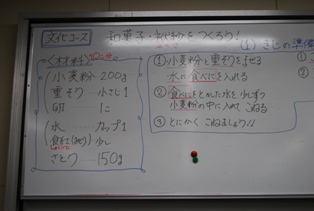 文化コース 和菓子・
をつくろう!
(1) きじの準備
<材料>
小麦粉 200g
重そう 小さじ1
卵 1こ
水 カップ1
食紅(赤) 少し
さとう 150g
① 小麦粉と重そうをまぜる
水に食べにを入れる
② 食べにをとかした水を少しずつ
小麦粉の中に入れてこねる
③ とにかくこねましょう!!
①
②